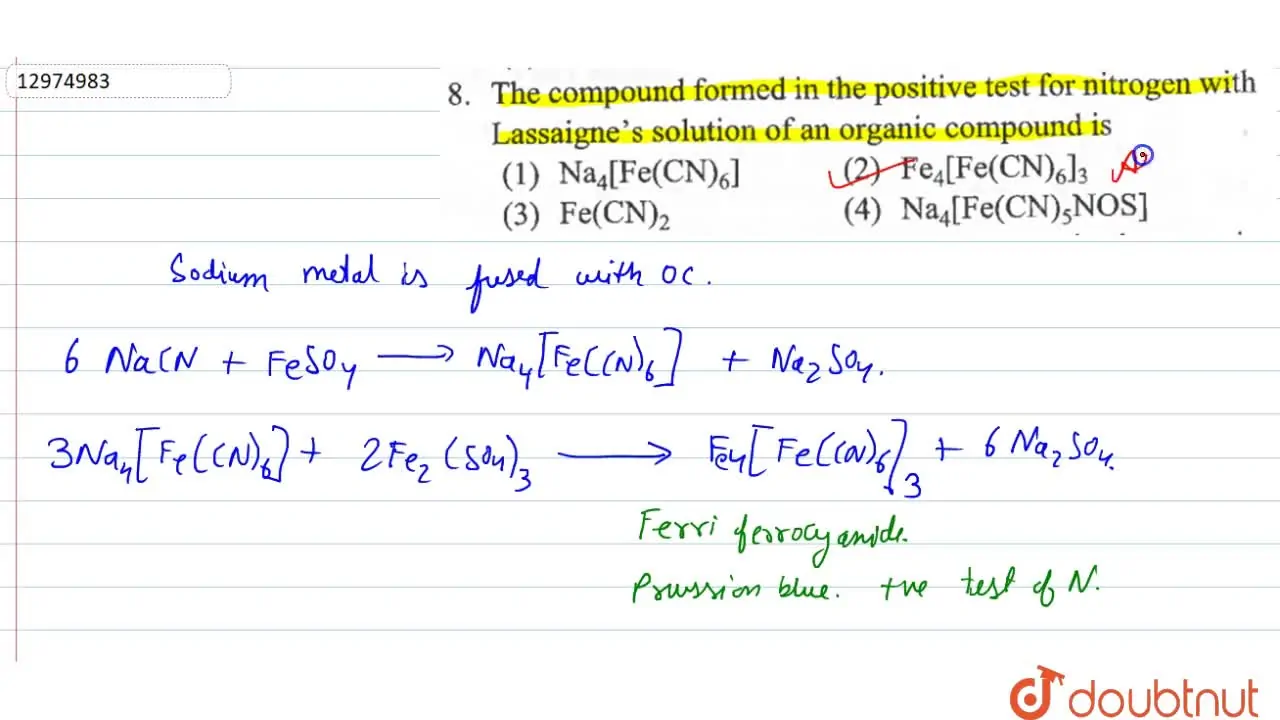 12974983
8. The compound formed in the positive test for nitrogen with
Lassaigne's solution of an organic compound is
(1) Na₄[Fe(CN)₆] (2) Fe₄[Fe(CN)₆]₃
(3) Fe(CN)₂ (4) Na₄[Fe(CN)₅NOS]
Sodium metal is fused with OC.
6 NaCN + FeSO₄ ⟶ Na₄[Fe(CN)₆] + Na₂SO₄.
3Na₄[Fe(CN)₆] + 2Fe₂(SO₄)₃ ⟶ Fe₄[Fe(CN)₆]₃ + 6 Na₂SO₄.
Ferri ferrocyanide.
Prussion blue. +ve test of N.
doubtnut